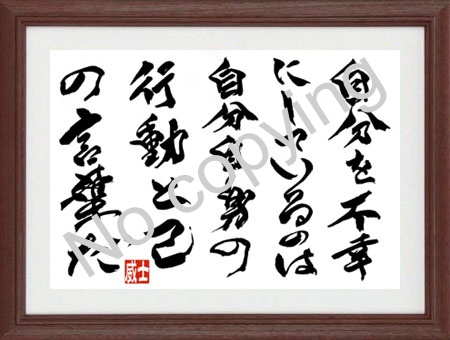 自分を不幸
にしているのは
自分自身の
行動と己
の言葉だ
威士
No copying